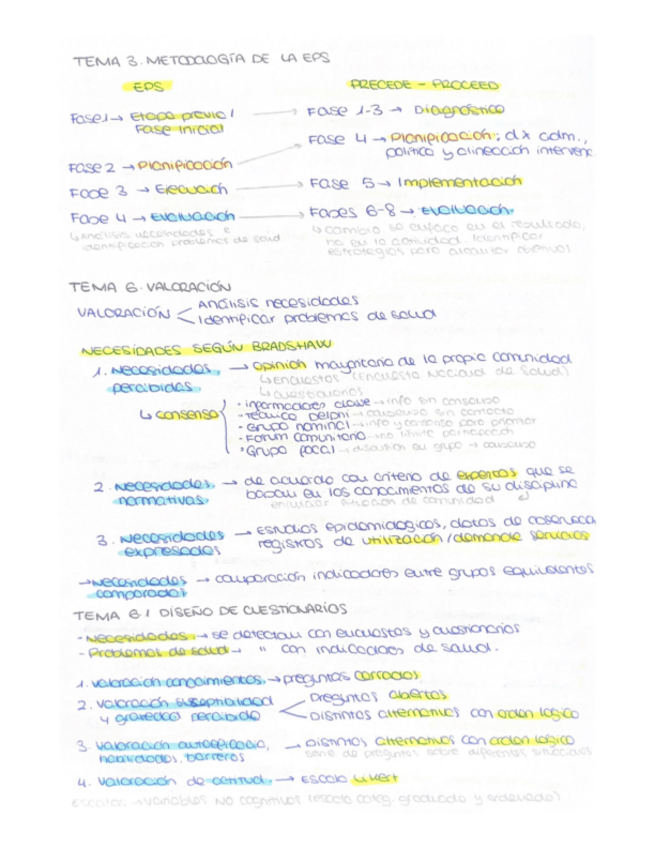 TEMA 3. METODOLOGÍA DE LA EPS
EPS
PRECEDE - PROCEED
Fase 1 → Etapa previa / Fase Inicial
Fase 1-3 → Diagnóstico
Fase 4 → Planificación: dx adm.,
política y alineación intervenc.
Fase 2 → Planificación
Fase 3 → Ejecución
Fase 5 → Implementación
Fase 4 → Evaluación
Fases 6-8 → Evaluación.
↳ Análisis necesidades e
identificación problemas de salud
↳ cambio se enfoca en el resultado,
no en la actividad. Identificar
estrategias para alcanzar objetivos
TEMA 6. VALORACIÓN
VALORACIÓN < Análisis necesidades
Identificar problemas de salud
NECESIDADES SEGÚN BRADSHAW
1. Necesidades percibidas → opinión mayoritaria de la propia comunidad
↳ Encuestas (Encuesta Nacional de Salud)
↳ cuestionarios
↳ consenso
· informadores clave → info sin consenso
· Técnica Delphi → consenso sin contacto
· Grupo nominal → info y consenso para priorizar
· Forum comunitario → no límite participación
· Grupo focal → discusión en grupo → consenso
2. Necesidades normativas. → de acuerdo con criterio de expertos que se
basan en los conocimientos de su disciplina
enjuiciar situación de comunidad
3. Necesidades expresadas → Estudios epidemiológicos, datos de
registros de utilización / demanda servicios
→ Necesidades comparadas → comparación indicadores entre grupos equivalentes
TEMA 6.1 DISEÑO DE CUESTIONARIOS
- Necesidades → se detectan con encuestas y cuestionarios
- Problemas de salud → " con indicadores de salud.
1. Valoración conocimientos. → preguntas cerradas
2. Valoración susceptibilidad
y gravedad percibida
Preguntas abiertas
Distintas alternativas con orden lógico
3. Valoración autoeficacia,
habilidades, barreras
→ Distintas alternativas con orden lógico
serie de preguntas sobre diferentes situaciones
4. Valoración de actitud. → Escala Likert
Escalas → variables NO cognitivas (escala categ. graduada y ordenada)